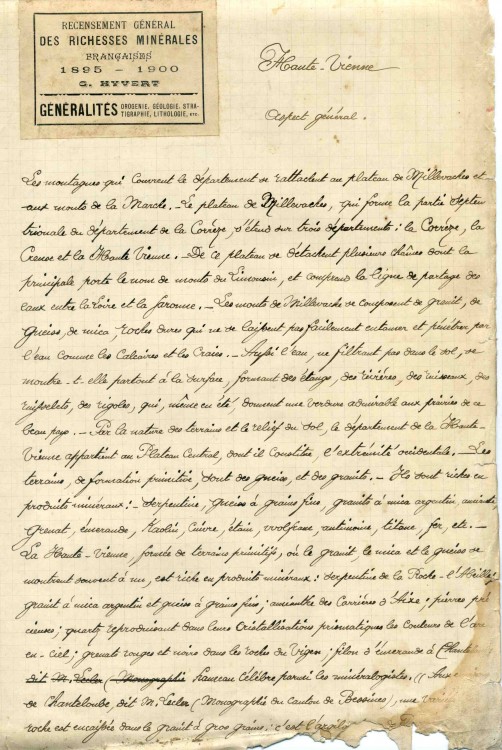 RECENSEMENT GÉNÉRAL
DES RICHESSES MINÉRALES
FRANÇAISES
1895 – 1900
G. HYVERT
GÉNÉRALITÉS OROGENIE, GÉOLOGIE, STRA-
TIGRAPHIE, LITHOLOGIE, etc.
Haute-Vienne
Aspect général.
Les montagnes qui couvrent le département se rattachent au plateau de Millevaches et
aux monts de la Marche. — Le plateau de Millevaches, qui forme la partie Septen
trionale du département de la Corrèze, s'étend sur trois départements : la Corrèze, la
Creuse et la Haute Vienne. — De ce plateau se détachent plusieurs chaînes dont la
principale porte le nom de monts du Limousin, et comprend la ligne de partage des
eaux entre la Loire et la Garonne. — Les monts de Millevache se composent de granit, de
Gneiss, de mica, roches dures qui ne se laissent pas facilement entamer et pénétrer par
l'eau comme les Calcaires et les Craies. — Aussi l'eau, ne filtrant pas dans le sol, se
montre-t-elle partout à la surface, formant des étangs, des rivières, des ruisseaux, des
ruisselets, des rigoles, qui, même en été, donnent une verdure admirable aux prairies de ce
beau pays. — Par la nature des terrains et le relief du sol, le département de la Haute-
Vienne appartient au Plateau Central, dont il constitue l'extrémité occidentale. — Les
terrains, de formation primitive, sont des gneiss, et des granits. — Ils sont riches en
produits minéraux : — Serpentine, gneiss à grains fins, granit à mica argentin,
Grenat, émeraude, Kaolin, Cuivre, étain, wolfram, antimoine, titane, fer, etc. —
La Haute-Vienne, formée de terrains primitifs, où le granit, le mica et le gneiss se
montrent souvent à nu, est riche en produits minéraux : serpentine de la Roche-l'Abeille
granit à mica argentin et gneiss à grains fins ; des Carrières d'Aixe ; pierres pré
cieuses ; quartz reproduisant dans leurs Cristallisations prismatiques les couleurs de l'arc
en-ciel ; grenats rouges et noirs dans les roches du Vigen ; filon d'émeraude à
dit M. Lecler (Monographie hameau Célèbre parmi les minéralogistes. ((
de Chanteloube, dit M. Lecler (Monographie du canton de Bessines), une
roche est encaissée dans le granit à gros grains : c'est